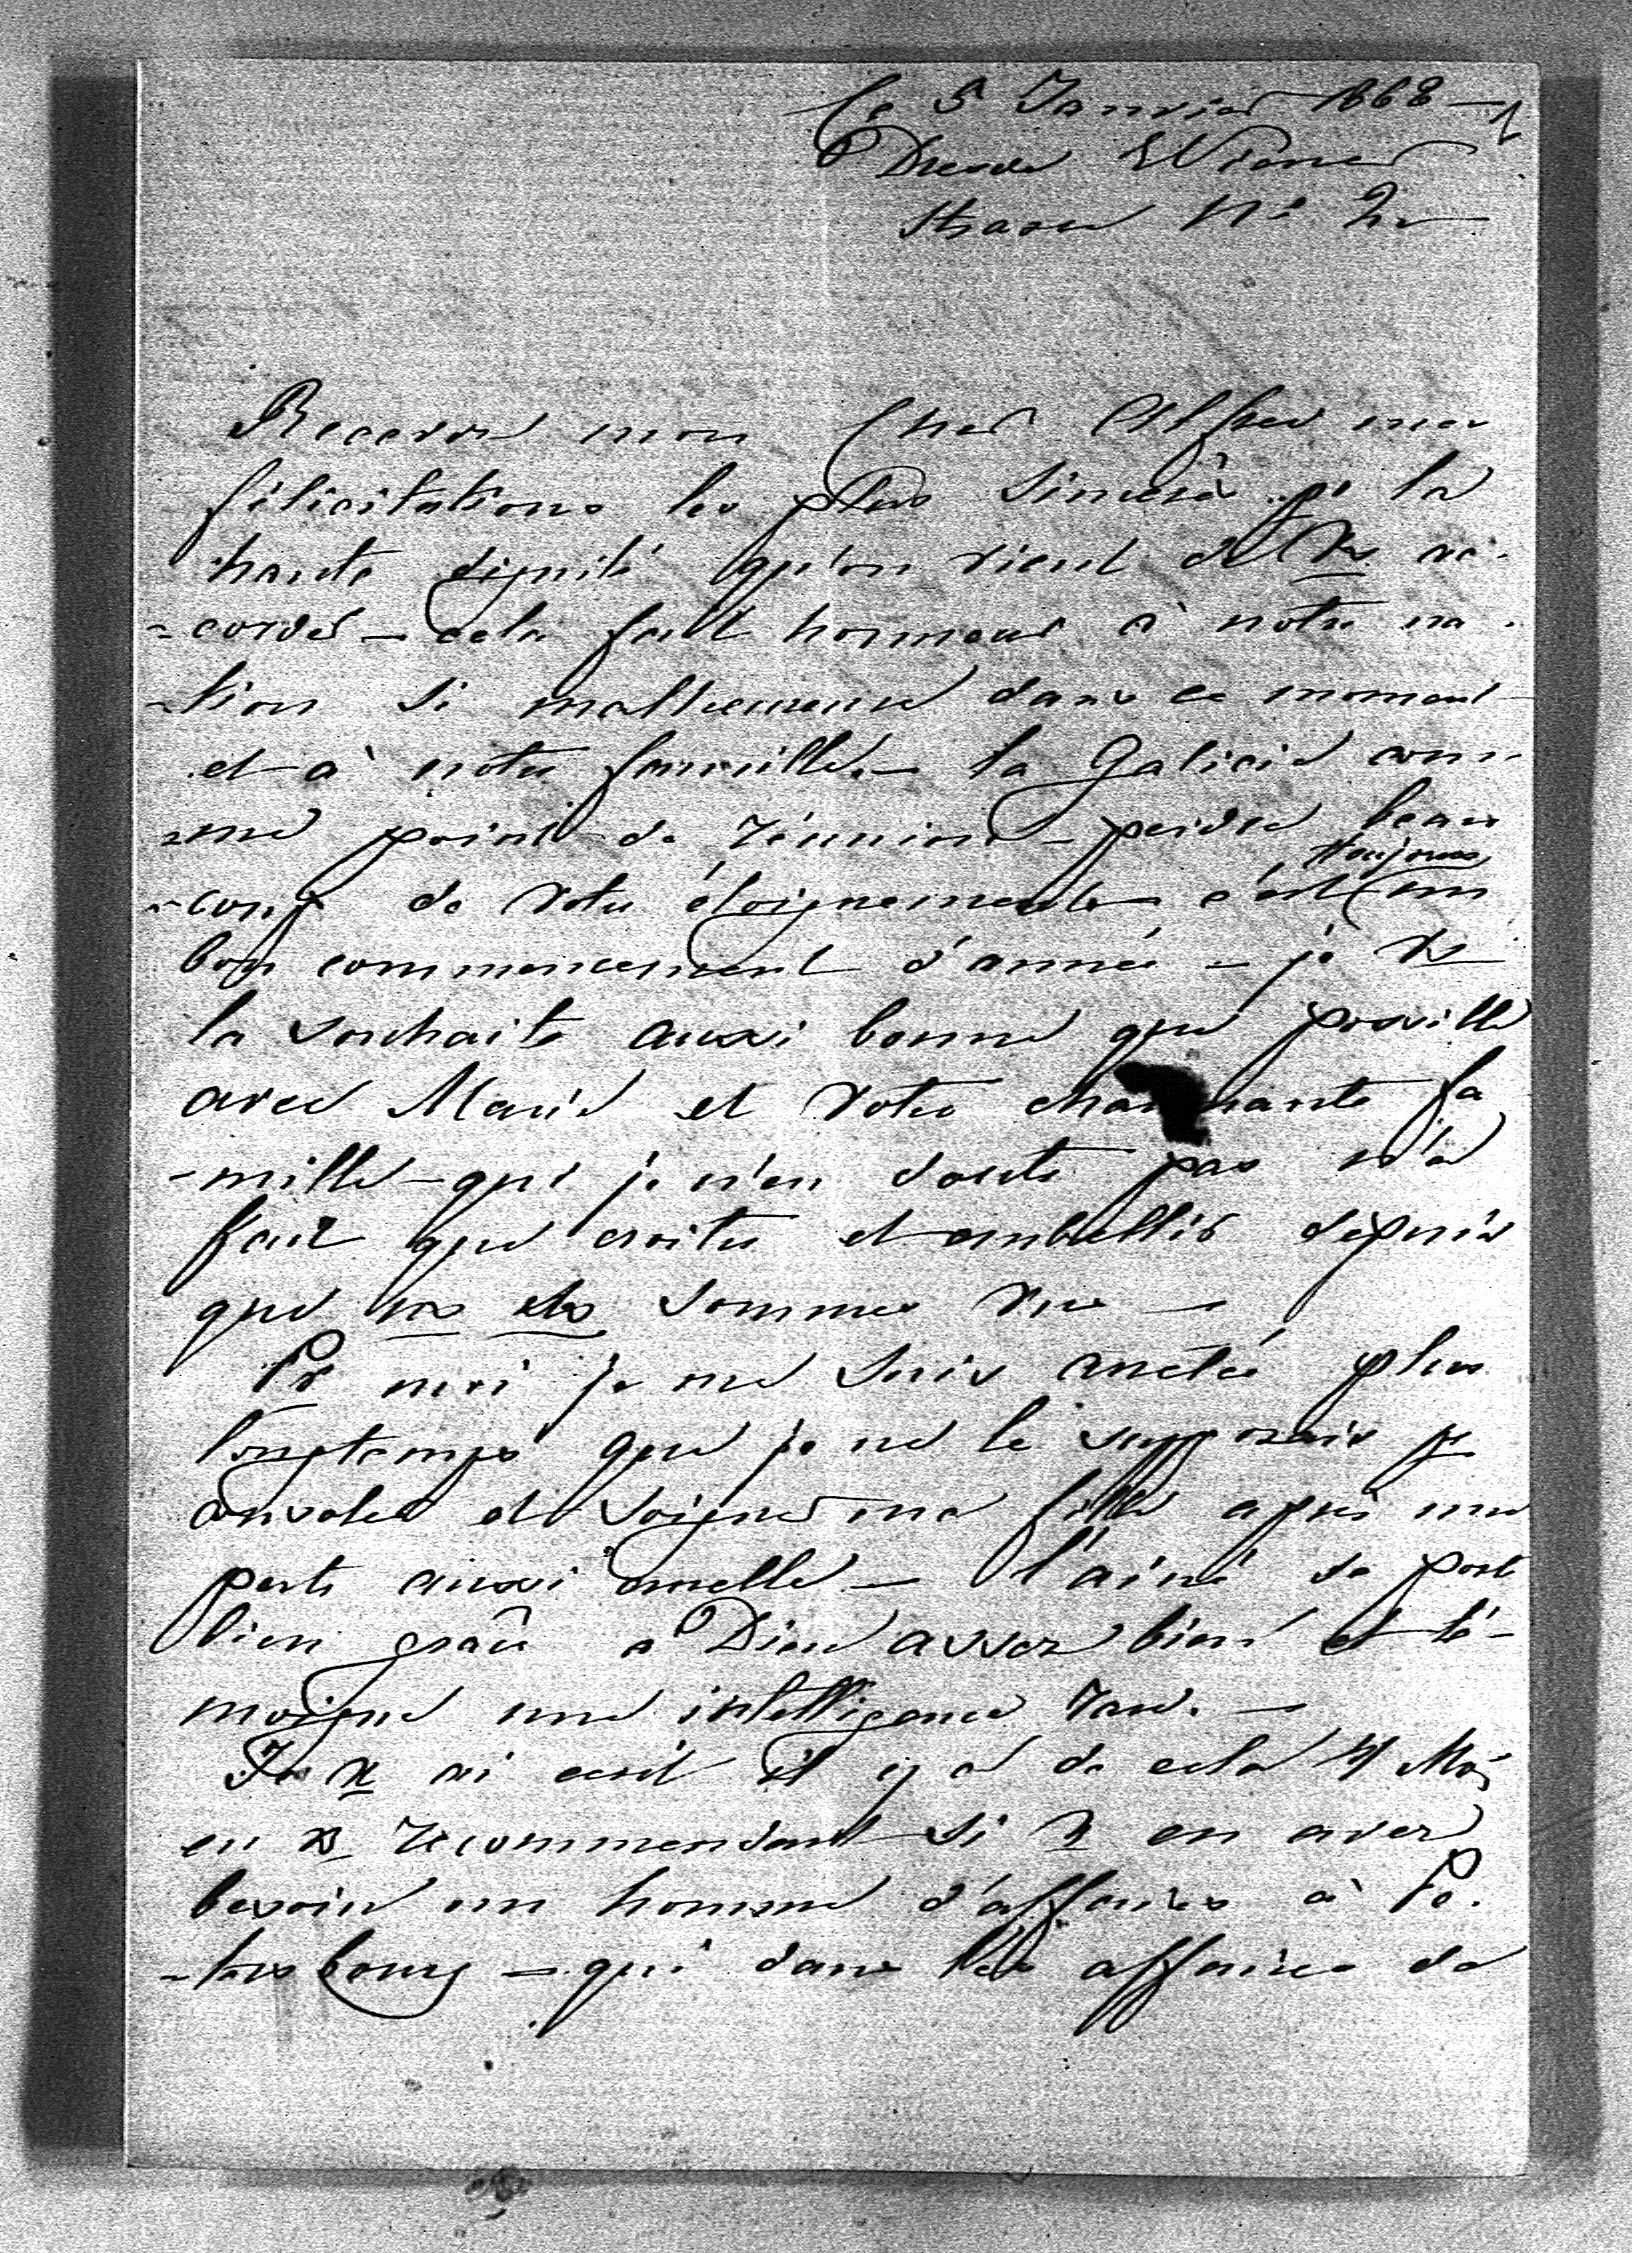 le 5 Janvier 1868 –
Dresde Wiener
Strasse N° 2
Recevez mon Cher Alfred mes
félicitations les plus sincères pr la
haute dignité qu'on vient de vs ac-
-corder – cela fait honneur à notre na-
-tion si malheureuse dans ce moment
et à notre famille. – la Galicie com-
-me point de réunion – perdra beau
-coup de votre éloignement – c'est toujours un
bon commencement d'année – je vs
la souhaite aussi bonne que possible
avec Marie et votre charmante fa
-mille – qui je n'en doute pas n'a
fait que croitre et embellir depuis
que ns ns sommes vus –
Pr moi je me suis arretée plus
longtemps que je ne le supposais pr
consoler et soigner ma fille après une
perte aussi cruelle – l'ainé se porte
bien grace a Dieu assez bien et té-
moigne une intelligence rare. –
Je vs ai ecrit il y a de cela 4 Mois
en vs recommendant si vs en avez
besoin un homme d'affaires à Pe-
-tersbourg – qui dans les affaires de